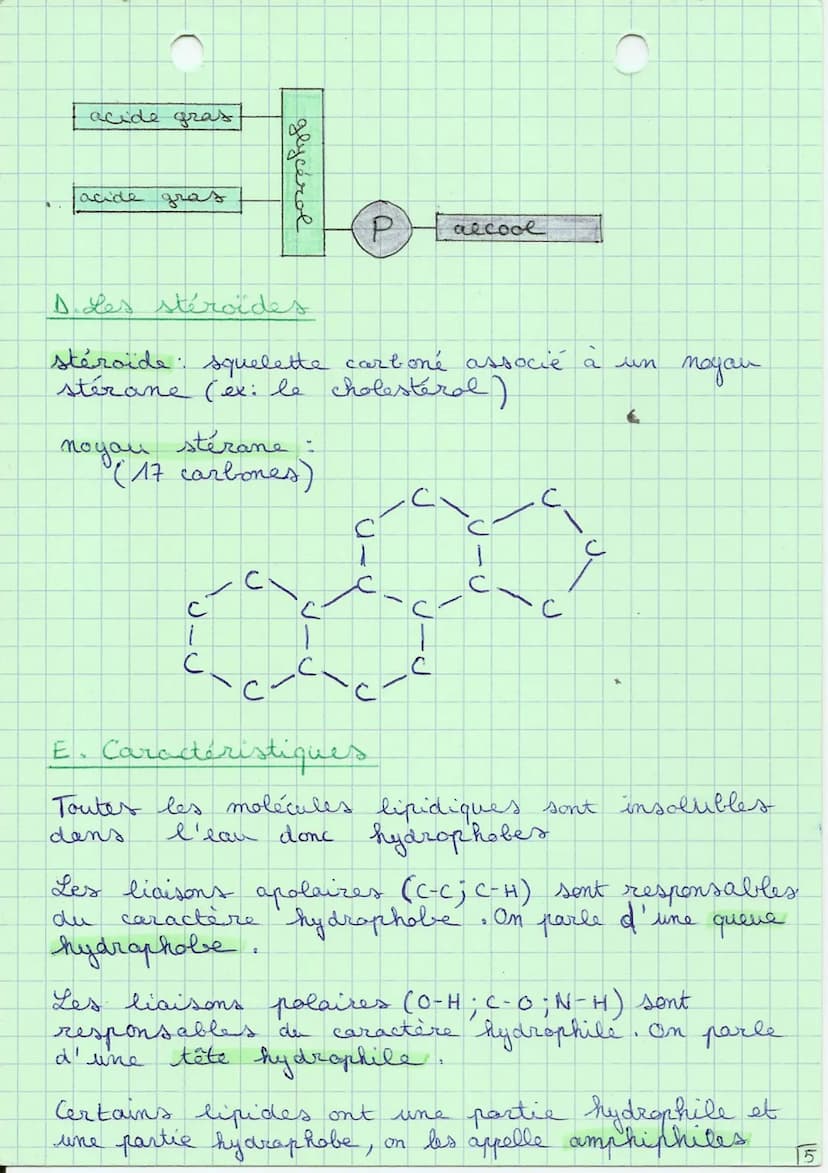 acide gras
glycérol
acide gras
P
alcool
D. Les stéroïdes
stéroïde : squelette carboné associé à un noyau
stérane (ex: le cholestérol)
noyau stérane :
(17 carbones)
C C
C C
C
C C
C C C C
C
C C C
C C
E. Caractéristiques
Toutes les molécules lipidiques sont insolubles
dans l'eau donc hydrophobes
Les liaisons apolaires (C-C; C-H) sont responsables
du caractère hydrophobe. On parle d'une queue
hydrophobe.
Les liaisons polaires (O-H ; C-O ; N-H) sont
responsables du caractère hydrophile. On parle
d'une tête hydrophile.
Certains lipides ont une partie hydrophile et
une partie hydrophobe, on les appelle amphiphiles
5